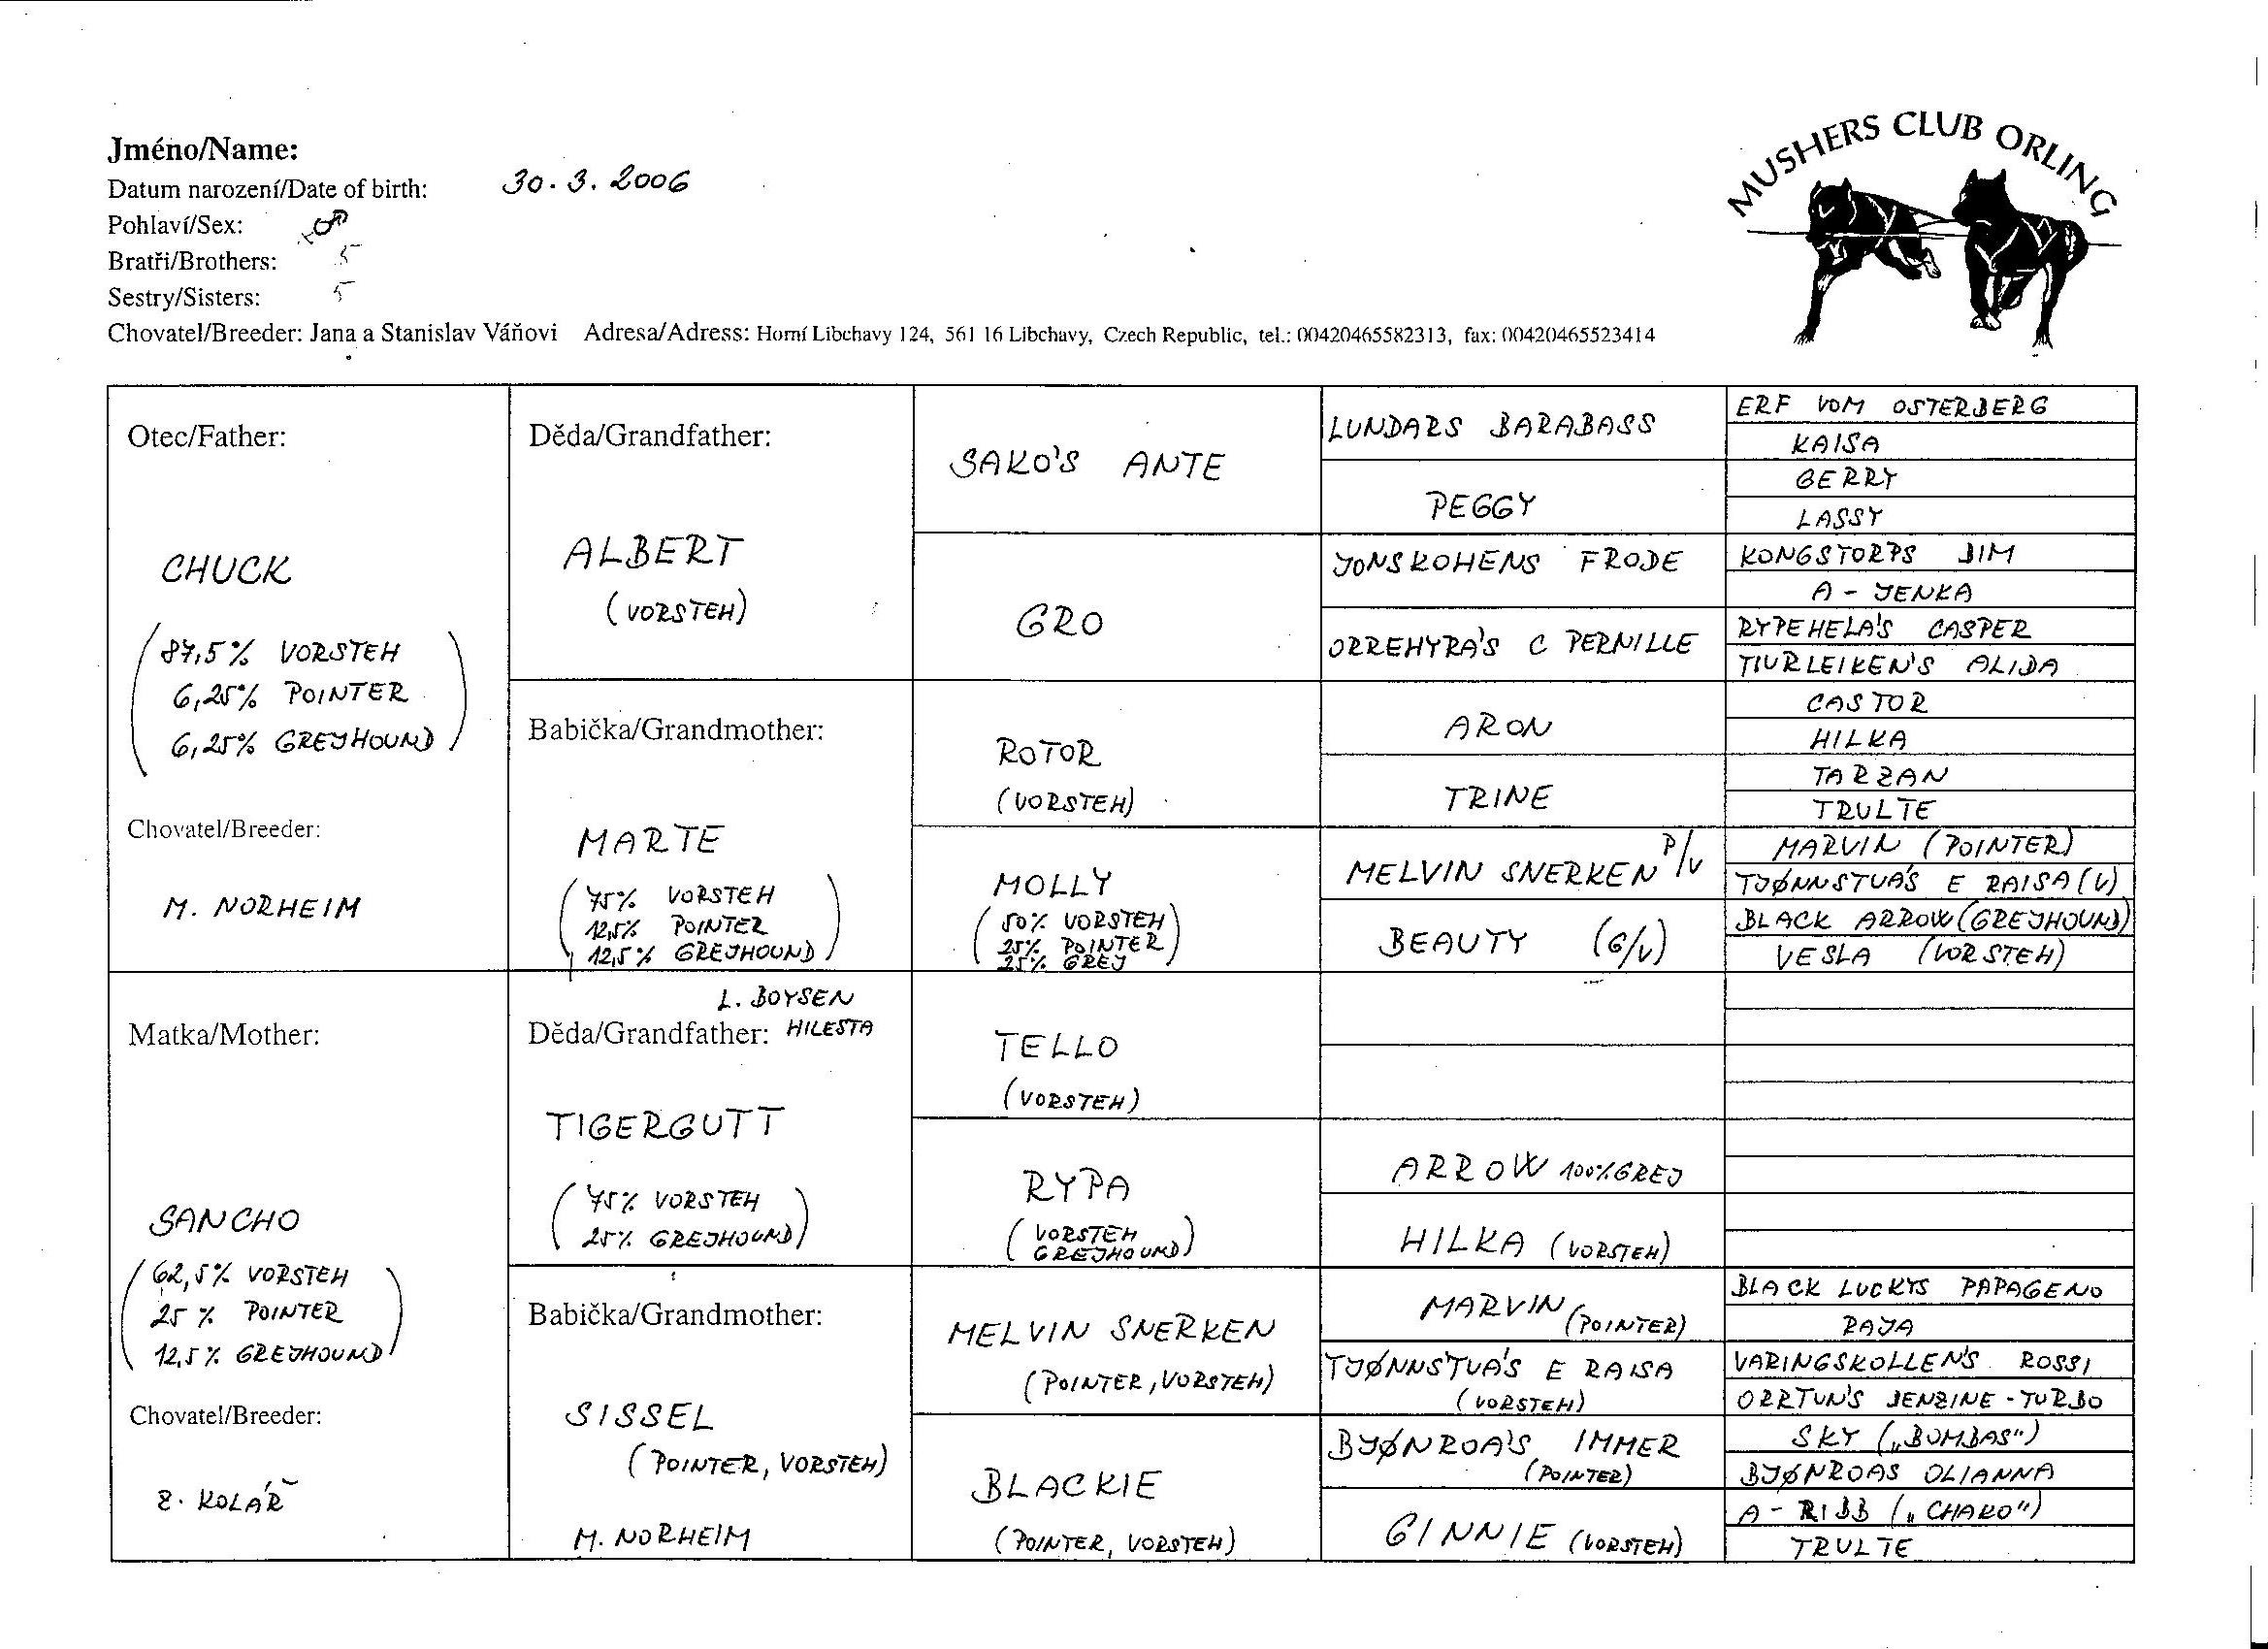 MUSHERS CLUB ORLING
Jméno/Name:
Datum narození/Date of birth: 30. 3. 2006
Pohlaví/Sex: ♂
Bratři/Brothers: 5
Sestry/Sisters: 5
Chovatel/Breeder: Jana a Stanislav Váňovi Adresa/Adress: Horní Libchavy 124, 561 16 Libchavy, Czech Republic, tel.: 00420465582313, fax: 00420465523414
Otec/Father:
CHUCK
(87,5% VORSTEH
6,25% POINTER
6,25% GREJHOUND)
Chovatel/Breeder:
M. NORHEIM
Děda/Grandfather:
ALBERT
(VORSTEH)
Babička/Grandmother:
MARTE
(75% VORSTEH
12,5% POINTER
12,5% GREJHOUND)
SAKO'S ANTE
GRO
ROTOR
(VORSTEH)
MOLLY
(50% VORSTEH
25% POINTER
25% GREJ)
LUNDARS BARABASS
PEGGY
JONSKOHENS FRODE
ORREHYRA'S C PERNILLE
ARON
TRINE
MELVIN SNERKEN P/V
BEAUTY (G/V)
ERF VOM OSTERBERG
KAISA
GERRY
LASSY
KONGSTORPS JIM
A - JENKA
RYPEHELA'S CASPER
TIURLEIKEN'S ALIDA
CASTOR
HILKA
TARZAN
TRULTE
MARVIN (POINTER)
TJØNNSTUA'S E RAISA (V)
BLACK ARROW (GREJHOUND)
VESLA (VORSTEH)
Matka/Mother:
SANCHO
(62,5% VORSTEH
25 % POINTER
12,5% GREJHOUND)
Chovatel/Breeder:
Z. KOLÁŘ
L. BOYSEN
Děda/Grandfather: HILESTA
TIGERGUTT
(75% VORSTEH
25% GREJHOUND)
Babička/Grandmother:
SISSEL
(POINTER, VORSTEH)
M. NORHEIM
TELLO
(VORSTEH)
RYPA
(VORSTEH
GREJHOUND)
MELVIN SNERKEN
(POINTER, VORSTEH)
BLACKIE
(POINTER, VORSTEH)
ARROW 100% GREJ
HILKA (VORSTEH)
MARVIN (POINTER)
TJØNNSTUA'S E RAISA
(VORSTEH)
BJØNROA'S IMMER
(POINTER)
GINNIE (VORSTEH)
BLACK LUCKYS PAPAGENO
RAJA
VARINGSKOLLEN'S ROSSI
ORRTUN'S JENZINE - TURBO
SKY („BOMBAS")
BJØNROAS OLIANNA
A - RIBB („CHAKO")
TRULTE